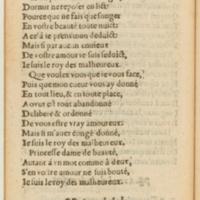 Dormir ne reposer en lict
Pource que ne fais que songer
En vostre beauté toute nuict:
Mais si par aucun ennieux
De vostre amour ie suis
Ie suis le roy des malheureux.
Que voulez vous que ie vous face,
Puis que mon cueur vous ay donné
En tout lieu, & en toute place,
A vous est tout abandonné
Delibere & ordonné
De vous estre vray amoureux:
Mais si m'auez congé donné,
Ie suis le roy des malheureux.
Princesse dame de beauté,
Autant à vn mot comme à deux,
S'en vostre amour ne suis bouté,
Ie suis le roy des malheureux.